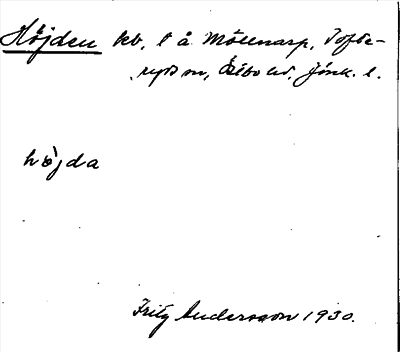 Höjden lb, l å Målenasp, Tofte-
ryds sn, Östbo hd, Jönk. l.
höjda
Fritz Andersson 1930.